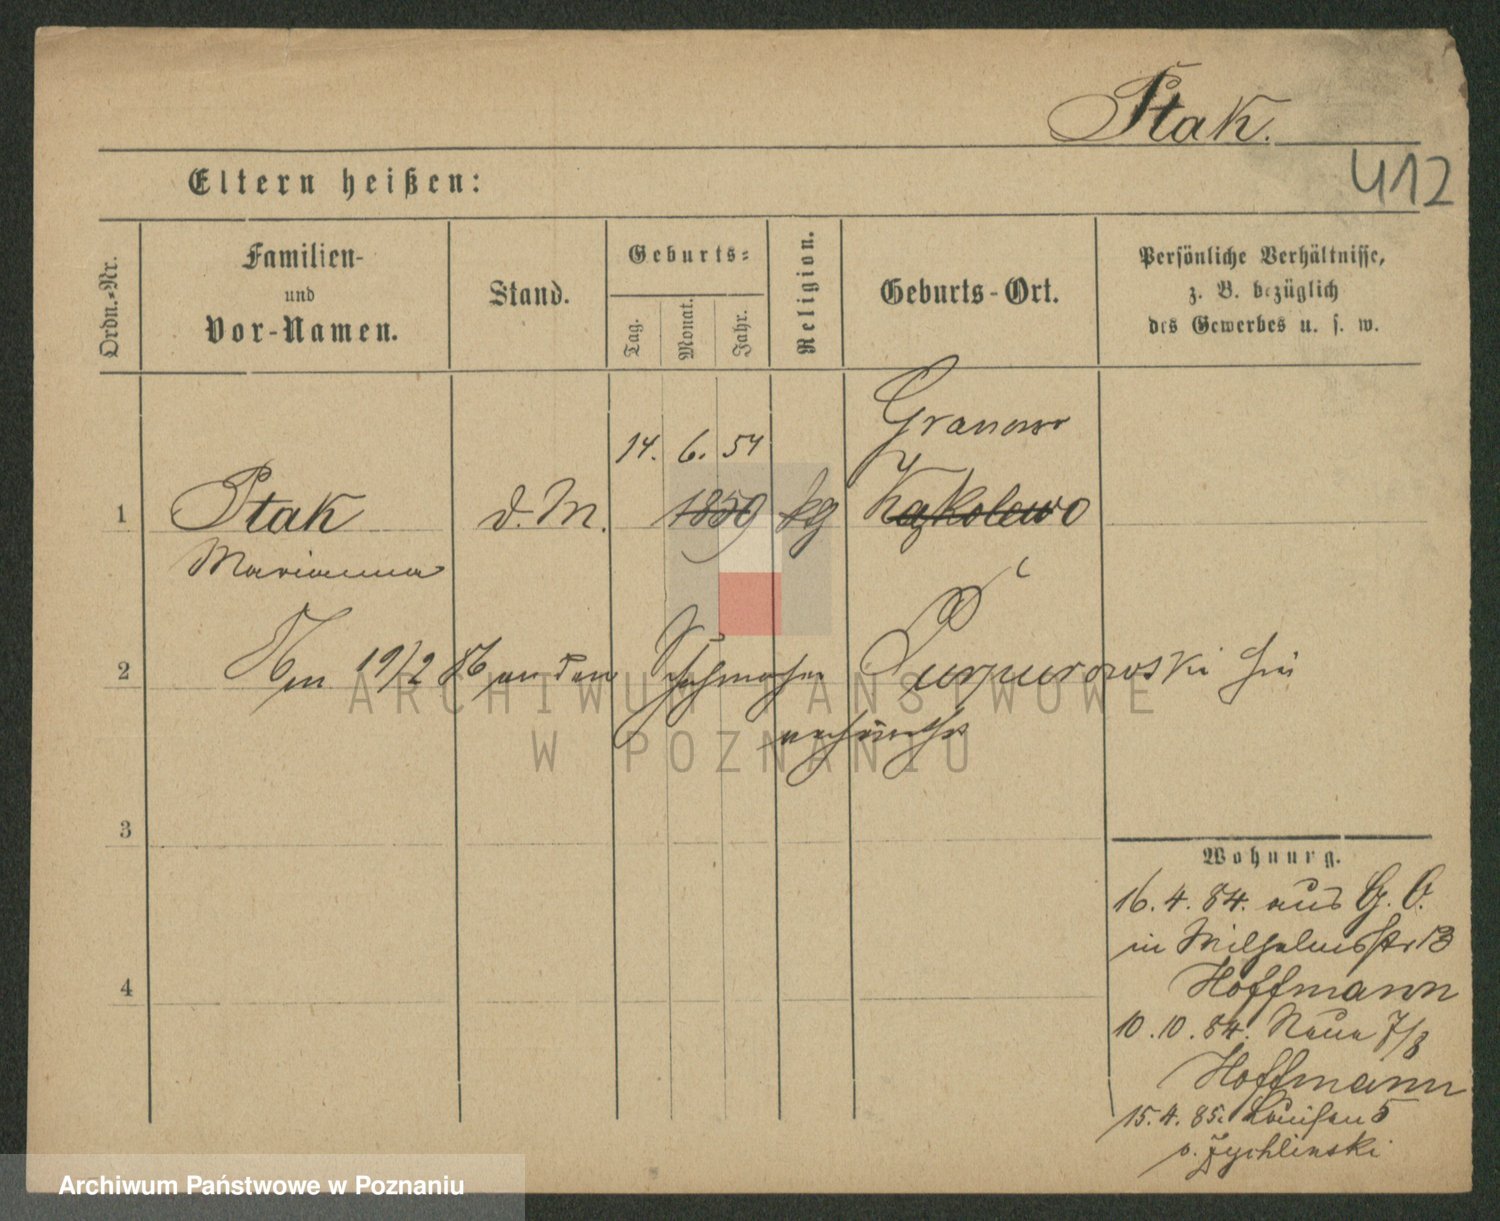 Ptak.
412
Eltern heißen:
Ordn.-Nr.
Familien-
und
Vor-Namen.
Stand.
Geburts-
Tag.
Monat.
Jahr.
Religion.
Geburts-Ort.
Persönliche Verhältnisse,
z. B. bezüglich
des Gewerbes u. s. w.
Granowo
14. 6. 54
1 Ptak d. M. 1859 kg Kąkolewo
Marianna
2 Am 19/2 86 an den Schuhmacher hier
3
Wohnung.
16. 4. 84. aus G. O.
in Wilhelmsstr 13
Hoffmann
4
10. 10. 84. Neue 7/8
Hoffmann
15. 4. 85. Louisen 5
v. Zychlinski
ARCHIWUM PAŃSTWOWE
W POZNANIU
Archiwum Państwowe w Poznaniu